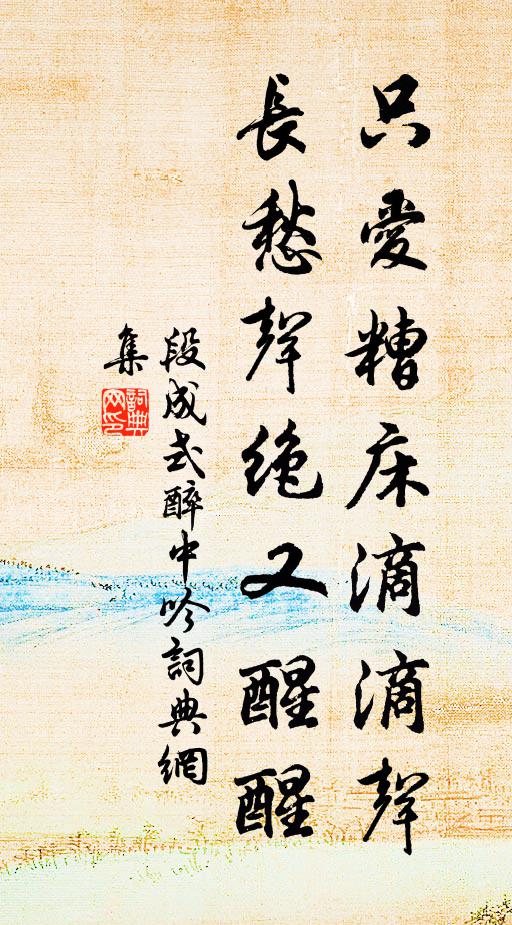 只愛糟床滴滴聲
長愁聲絶又醒醒
段成式醉中吟詞典網
集
詞典
网印